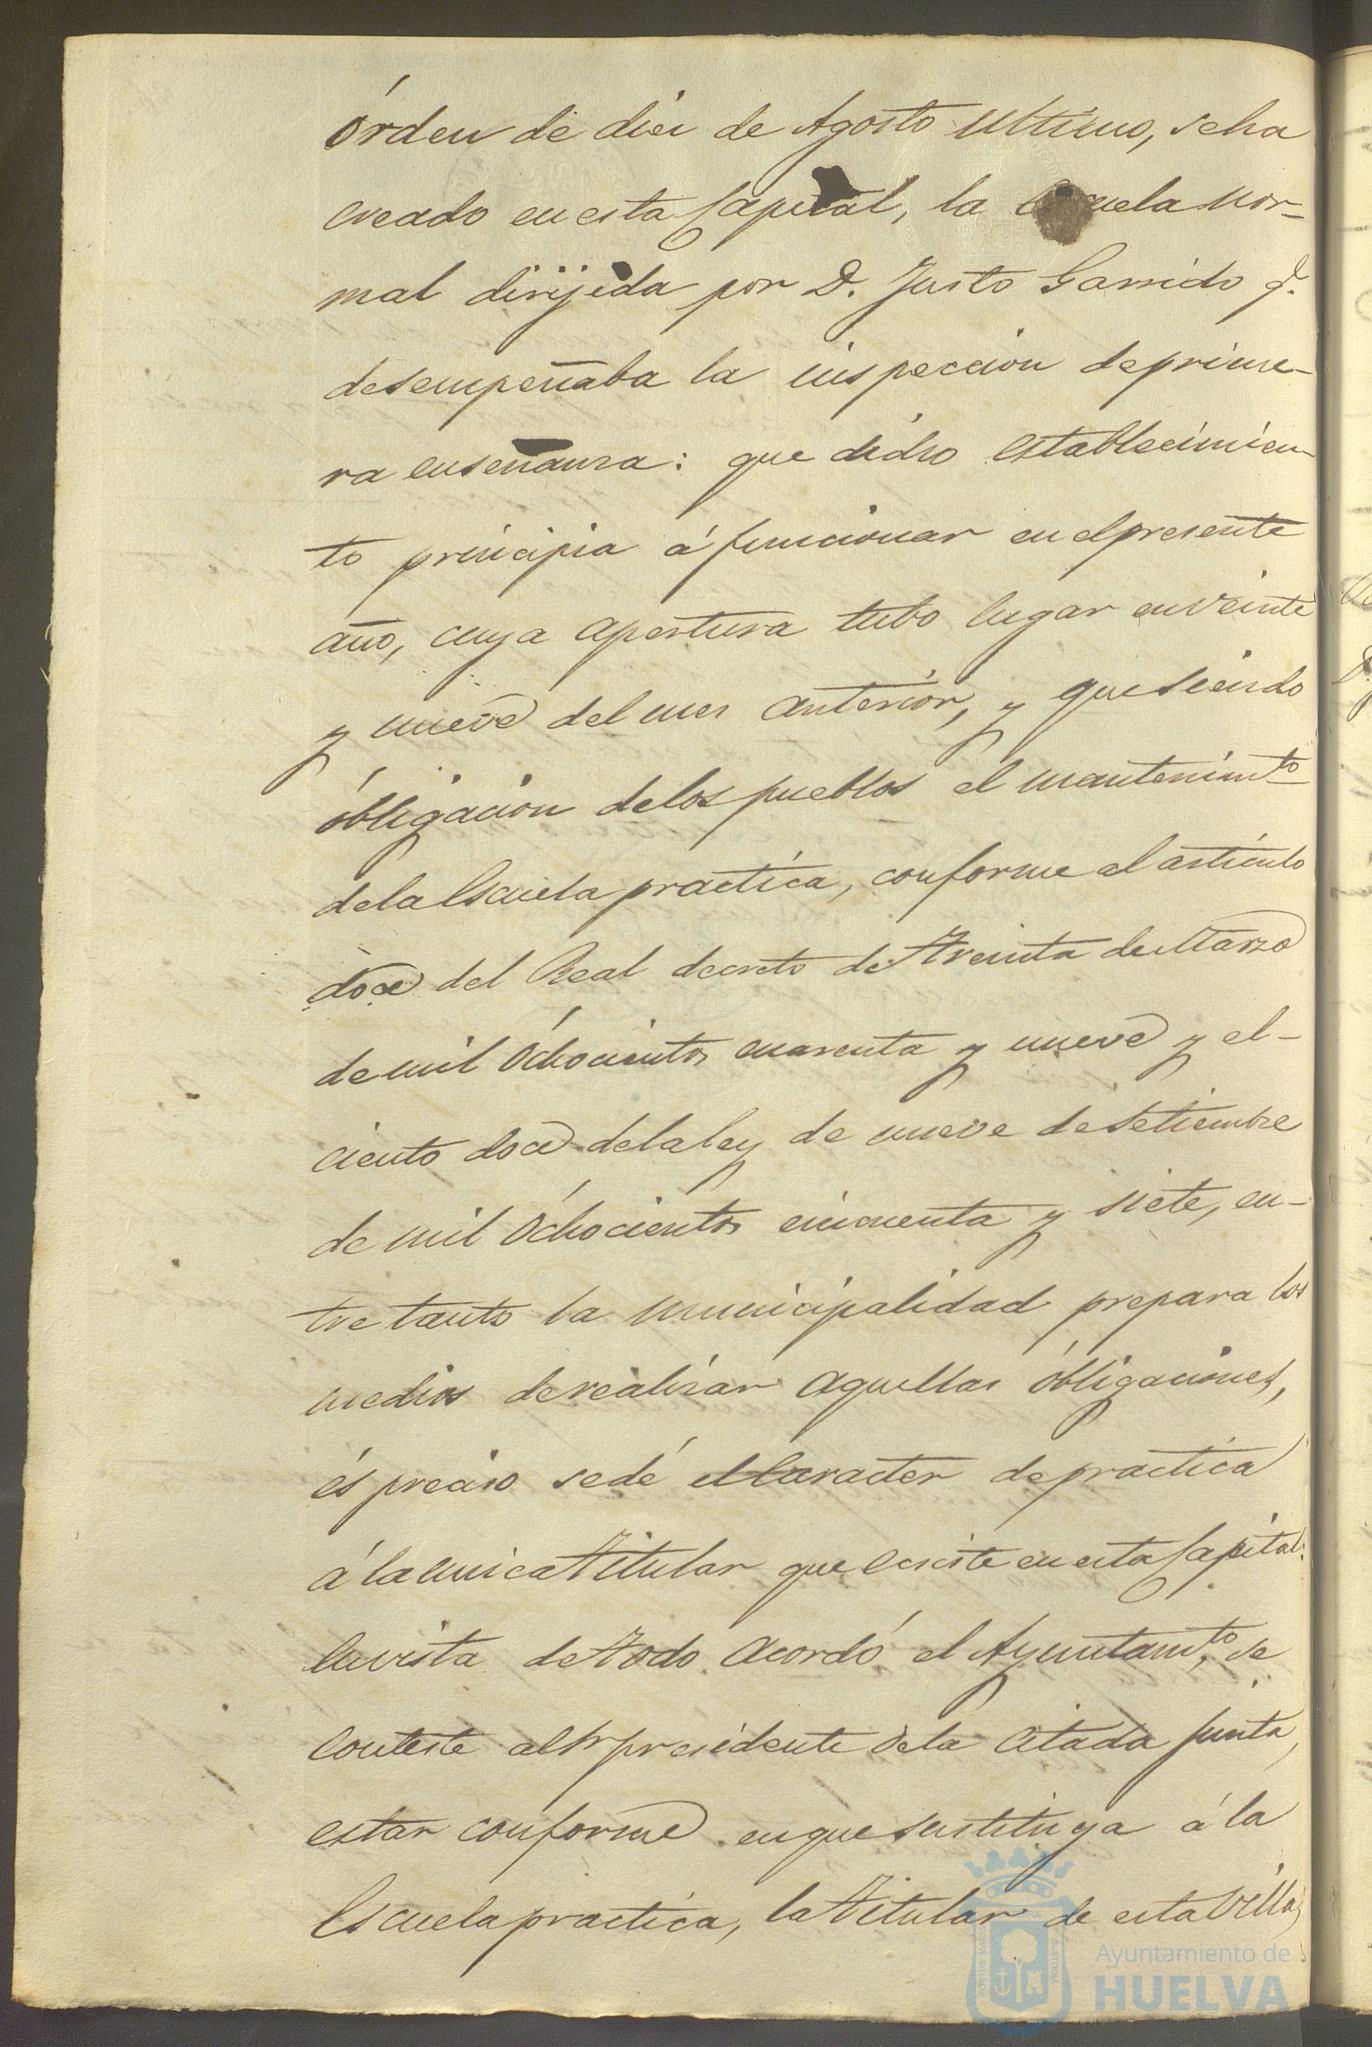 órden de diez de Agosto ultimo, se ha
creado en esta Capital, la Escuela nor-
mal dirijida por D. Justo Garrido q.e
desempeñaba la inspeccion de prime-
ra enseñanza: que dicho establecimien-
to principia á funcionar en el presente
año, cuya apertura tubo lugar en veinte
y nueve del mes anterior, y que siendo
óbligacion de los pueblos el mantenimto
de la Escuela practica, conforme al articulo
doce del Real decreto de treinta de Marzo
de mil óchocientos cuarenta y nueve y el-
ciento doce de la ley de nueve de Setiembre
de mil óchocientos cincuenta y siete, en-
tre tanto la municipalidad prepara los
medios de realizar aquellas óbligaciones,
és preciso se dé el Caracter de practica
á la unica titular que ecsiste en esta Capital.
En vista de todo acordó el Ayuntam.to se
conteste al Sr presidente de la citada junta,
estar conforme en que sustituya á la
Escuela practica, la titular de esta Villa,
Ayuntamiento de
HUELVA